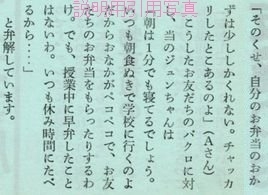 「そのくせ、自分のお弁当のおか
ずは少ししかくれない。チャッカ
リしたとこあるのよ」(Aさん)
こうしたお友だちのバクロに対
し、当のジュンちゃんは
「朝は1分でも寝てるでしょう。
いつも朝食ぬきで学校に行くのよ
だからおなかがペコペコで、お友
だちのお弁当をもらったりするわ
け。でも、授業中に早弁したこと
はないわ。いつも休み時間にたべ
るから……」
と弁解しています。